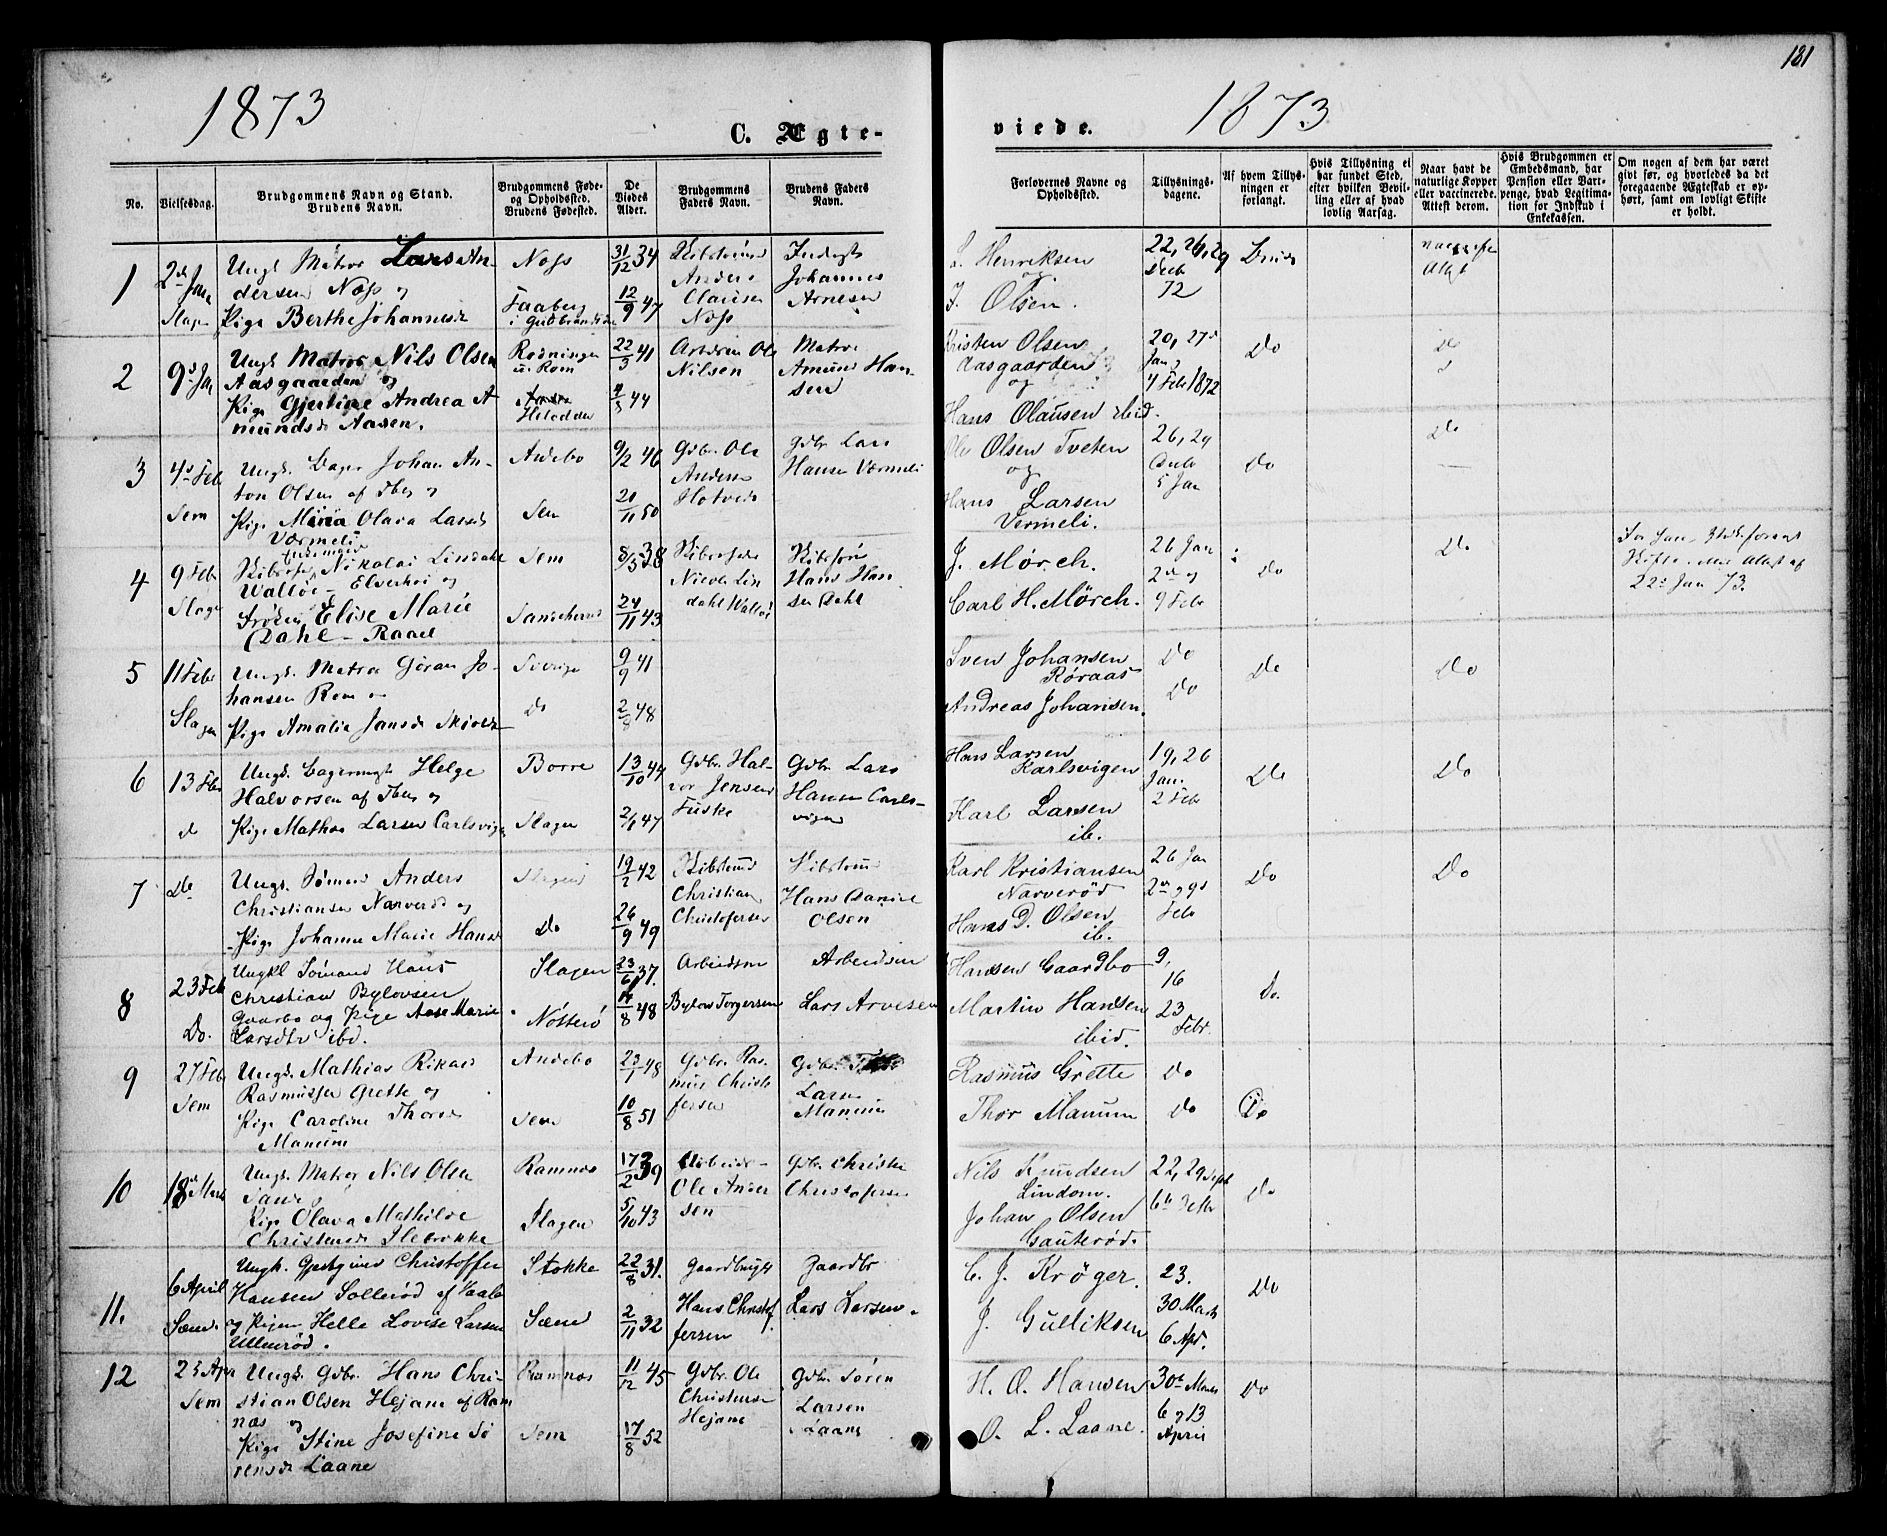 181
1873
1873
C. Ægte-
viede.
No.
Vielsesdag.
Brudgommens Navn og Stand.
Brudens Navn.
Brudgommens Føde-
og Opholdssted.
Brudens Fødested.
De
Viedes
Alder.
Brudgommens
Faders Navn.
Brudens Faders
Navn.
Forlovernes Navne og
Opholdssted.
Tillysnings-
dagene.
Af hvem Tillys-
ningen er
forlangt.
Hvis Tillysning ei
har fundet Sted,
efter hvilken Bevil-
ling eller af hvad
lovlig Aarsag.
Naar havt de
naturlige Kopper
eller vaccinerede.
Attest derom.
Hvis Brudgommen er
Embedsmand, har
Pension eller Vart-
penge, hvad Legitima-
tion for Indskud i
Enkekassen.
Om nogen af dem har været
givt før, og hvorledes da det
foregaaende Ægteskab er op-
hørt, samt om lovligt Skifte
er holdt.
1
2den Jan
Slagen
Ungk Matros Lars An-
dersen Næss og
Pige Berthe Johannesd
Næss
Faaberg
i Gudbrandsdn
31/12 34
12/9 47
Anders
Clausen
Næss
Johannes
Arnesen
L. Henriksen
og
J. Olsen.
22, 26, 29
Decb
72
Attest
2
9d Jan
Ungk Matros Nils Olsen
Aasgaarden og
Pige Gjertine Andrea A
mundsd Aasen.
22/3 41
4/3 44
Ole
Nilsen
Matros
Amund Han-
sen
Kristen Olsen
Aasgaarden
og
Hans Olausen ibid.
20, 27d
Jan
4 Feb 1872
Do
Do
3
4d Feb
Sem
Ungk. Bager Johan An-
ton Olsen af Tbg og
Pige Mina Olava Larsd
Værmeli
Andebo
Sem
9/2 46
20/11 50
Gdbr. Ole
Anders
Hotved
Gdbr Lars
Hansen Værmeli
Ole Olsen Tveten
og
Hans Larsen
Vermeli.
26, 29
Decb
5 Jan
Do
Do
4
9 Feb
Slagen
Nikolai Lindahl
Walløe - Elverhøi og
Elise Marie
Dahl - Raael
Sem
8/5 38
24/11 43
Nicolai Lin
dahl Walløe
Hans Han-
sen Dahl
J. Mørch.
Carl H. Mørch.
26 Jan
2den og
9 Feb
Do
Do
22d Jan 73.
5
11 Feb
Slagen
Ungk. Matros Gøran Jo-
hansen Rom og
Pige Amalia Jansd
Sverige
Do
9/9 41
2/8 48
Sven Johansen
Røraas
Andreas Johansen.
Do
Do
Do
Do
6
13 Feb
do
Ungk. Bagersvend Helge
Halvorsen af Tbg og
Pige Mathea Larsen Carlsvigen
Borre
Slagen
13/10 44
2/1 47
Gdbr. Hal-
vor Jensen
Fuske
Gdbr Lars
Hansen Carls-
vigen
Hans Larsen
Karlsvigen
Karl Larsen
ib.
19, 26
Jan.
2 Feb
Do
Do
7
Do
Ungk. Sømand Anders
Christiansen Narverød og
Pige Johanne Marie Hansd
Slagen
Do
19/2 42
26/9 49
Christian
Christofersen
Hans Daniel
Olsen
Karl Kristiansen
Narverød
Hans D. Olsen
ib.
26 Jan
2den og 9d
Feb
Do
Do
8
23 Feb
Do.
Ungkl Sømand Hans
Christian Bylovsen
Gaarbo og Pige Aase Marie
Larsdtr ibd.
Slagen
Nøtterø
23/6 37.
14/8 48
Arbeidsm
Bylow Torgersen
Arbeidsm
Lars Arvesen
Hansen Gaardbo
Martin Hansen
ibid.
9.
16
23
Febr.
Do.
9
27 Feb
Sem
Ungk. Mathias Rikard
Rasmussen Grette og
Pige Caroline Thorsd
Manum
Andebo
Sem
23/1 48
10/8 51
Gdbr. Ras-
mus Christo
fersen
Gdbr.
Larsen
Manum
Rasmus Grette
Thor Manum
Do
Do
Do
10
18d Marts
Ungk. Matros Nils Olsen
Pige Olava Mathilde
Christensd Ilebrække
Ramnæs
Slagen
17/2 39
5/10 43
Ole Ander
sen
Gdbr Christen
Christofersen
Nils Knudsen
Lindom.
Johan Olsen
Gauterød.
22, 29 Sept
Do
11.
6 April
Sæm.
Ungk. Christoffer
Hansen Sollerød af Vaale
og Pigen Helle Lovise Larsen
Ullenrød.
Stokke
Sæm
22/8 31.
2/11 32
Gaardbruger
Hans Christof-
fersen
Gaardbr
Lars Larsen.
C. J. Krøger.
J. Gulliksen
23.
30 Marts
6 Apr.
Do
12
Sem
Ungk. Gdbr. Hans Chri-
stian Olsen Hejane af Ram
næs og
Pige Stine Josefine Sø
rensd Laane
Ramnæs
Sem
11/12 45
17/8 52
Gdbr. Ole
Christensen
Hejane
Gdbr. Søren
Larsen
Laane
H. O. Hansen
O. L. Laane.
30te Marts
6 og 13
April
Do